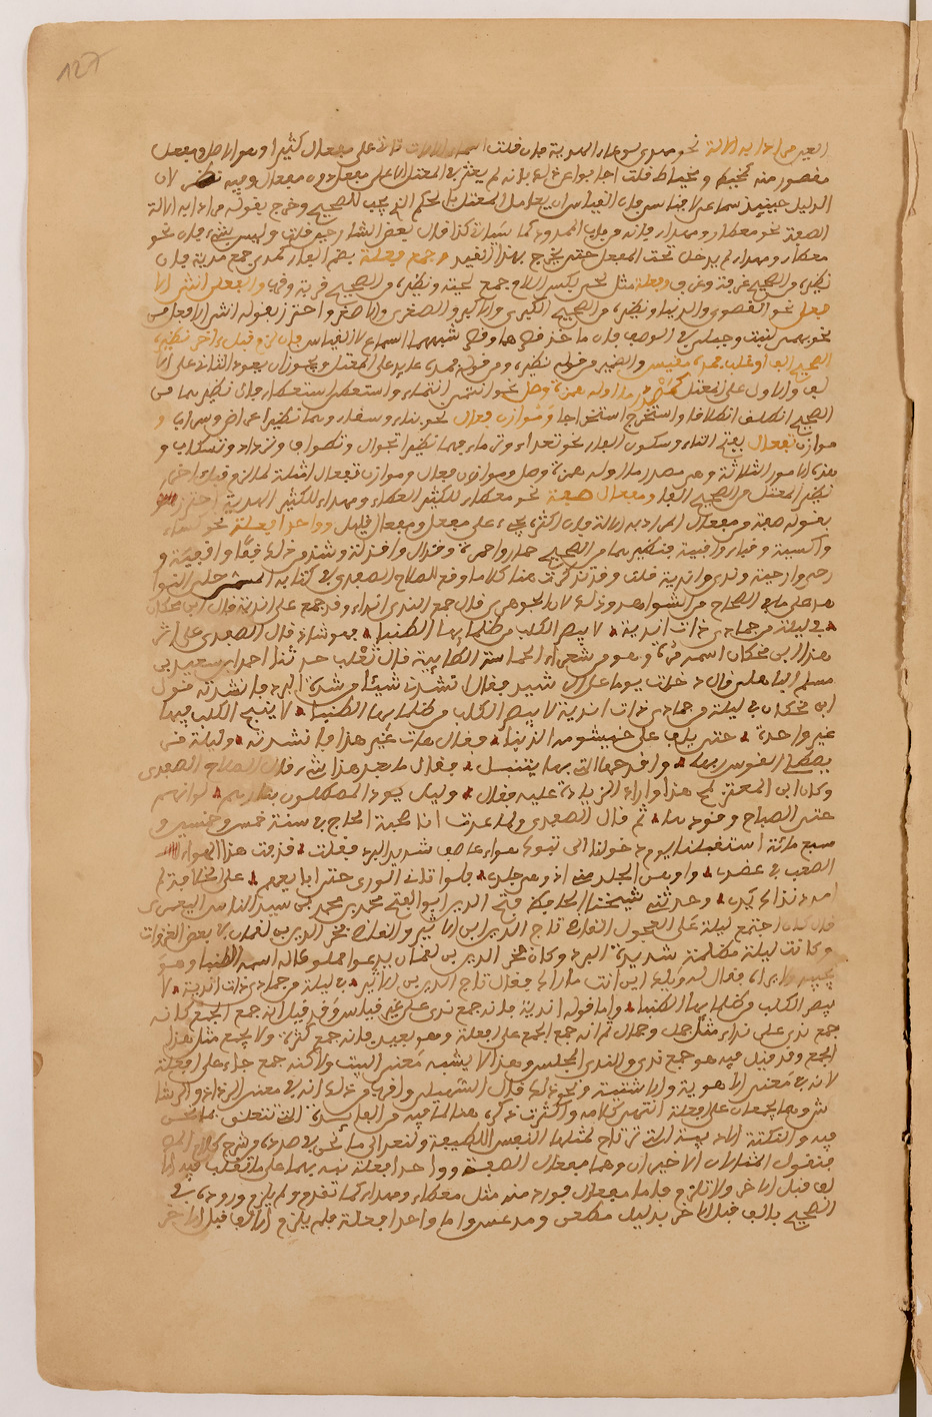 127
العين مرادا به الالة نحو مهدى لوعاء الهدية فان قلت اسماء الالات تاتى على مفعال كثيرا وهو الاصل ومفعل
مقصور منه كمخيط ومخياط قلت اجابوا عن ذلك بانه لم يعثر في المعتل الا على مفعل دون مفعال وفيه نظر لان
الدليل حينيذ سماعى لا قياسى فان القياس ان يعامل المعتل بالحكم الذى يجب للصحيح وخرج بقوله مرادا به الالة
الصفة نحو معطاء ومهداء فانه من باب الممدود كما سيأتى كذا قال بعض الشارحين قلت وليس بشىء فان نحو
معطاء ومهداء لم يدخل تحت المفعل حتى يخرج بهذا القيد وجمع فعلة بضم الفاء كمدى جمع مدية فان
نظيره من الصحيح غرفة وغرف وفعلة مثل لحى بكسر اللام جمع لحية ونظيره من الصحيح قربة وقرب والفعلى انثى الا
فعل نحو القصوى والدنيا ونظيره من الصحيح الكبرى والاكبر والصغرى والاصغر واحترز بقوله انثى الافعل من
نحو بهمى لنبت وحبلى في الوصف فان ماخذ قصرهما وقصر شبههما السماع لا القياس فان لزم قبل ءاخر نظيره
الصحيح الف او غلب فمده مقيس والضمير من قوله نظيره ومن قوله فمده عايد على المعتل ويجوز ان يعود الثانى على الا
لف والاول على المعتل كمصدر ما اوله همزة وصل نحو انتمى انتماء واستعطى استعطاء فان نظيرهما من
الصحيح انطلق انطلاقا واستخرج استخراجا وموازن فعال نحو بناء وسقاء وهما نظيرا
موازن تفعال بفتح التاء وسكون الفاء نحو تعداء وترماء فهما نظيرا تجوال وتطواف وترداد وتسكاب و
هذه الامور الثلاثة وهى مصدر ما اوله همزة وصل وموازن فعال وموازن تفعال امثلة لما لزم قبل ءاخر
نظير المعتل من الصحيح الف ومفعال صفة نحو معطاء للكثير العطاء ومهداء للكثير الهدية احترز
بقوله صفة من مفعال المراد به الالة فان اكثره يجيء على مفعل ومفعال قليل وواحد افعلة نحو كساء
واكسية وقباء واقبية فنظيرهما من الصحيح حمار واحمرة وقذال واقذلة وشذ من ذلك قفا واقفية و
رحى وارحية وندى واندية قلت وقد تذكرت هنا كلاما وقع للصلاح الصفدى في كتابه المسمى حلى النوا
هد على ما في الصحاح من الشواهد وذلك لان الجوهرى قال جمع الندى انداء وقد جمع على اندية قال ابن محكان
في ليلة من جمادى ذات اندية لا يبصر الكلب من ظلمائها الطنبا وهو شاذ قال الصفدى على اثر
هذا ابن محكان اسمه مرة وهو من شعراء الحماسة الطائية قال ثعلب حدثنا احمد بن سعيد بن
مسلم الباهلى قال دخلت يوما على الرشيد فقال انشدنى شيئا من شدة البرد فانشدته قول
ابن محكان في ليلة من جمادى ذات اندية لا يبصر الكلب من ظلمائها الطنبا لا ينبح الكلب فيها
غير واحدة حتى يلف على خيشومه الذنبا فقال هات غير هذا فانشدته وليلة قر
يصطلى القوس ربها واقدحه التى بها يتنبل فقال ما بعد هذا شىء قال الصلاح الصفدى
وكان ابن المعتز لمح هذا واراد الزيادة عليه فقال وليل يود المصطلون بناره لو انهم
حتى الصباح وقودها ثم قال الصفدى ولما عدت انا صحبة الحاج في سنة خمس وخمسين و
سبع مائة استقبلنا يوم دخولنا الى تبوك هواء عاصف شديد البرد فقلت قد بت هذا الهواء
الصعب في عضد واوبس الجلد منى اذ وهى جلدى فلو اتانى الورى حتى ابايعهم على الخلافة لم
امدد لذاك يدى وحدثنى شيخنا الحافظ فتح الدين ابو الفتح محمد بن محمد بن سيد الناس اليعمرى
قال كان اجتمع ليلة على العجول القاضى تاج الدين ابن الاثير والقاضى فخر الدين بن لقمان في بعض الغزوات
وكانت ليلة مظلمة شديدة البرد وكان فخر الدين بن لقمان يدعوا مملوكا له اسمه الطنبا وهو
يجيبه ولا يراه فقال له ويلك اين انت ما اراك فقال تاج الدين بن الاثير في ليلة من جمادى ذات اندية لا
يبصر الكلب من ظلمائها الطنبا واما قوله اندية فانه جمع ندى على غير قياس وقد قيل انه جمع الجمع كانه
جمع ندى على نداء مثل جمل وجمال ثم انه جمع الجمع على افعلة وهو بعيد فانه جمع كثرة ولا يجمع مثل هذا
الجمع وقد قيل فيه هو جمع ندى والندى المجلس وهذا لا يشبه معنى البيت ولاكنه جمع جاء على افعلة
لانه في معنى الاهوية والاشتية ونحو ذلك قال التسهيلى واقرب من ذلك انه في معنى الرذاذ والرشا
ش وهما يجمعان على افعلة انتهى كلامه واكثرت ذكره هنا لما فيه من الفايدة التى تتعلق بما نحن
فيه والنكتة الادبية التى ترتاح لمثلها النفس اللطيفة ولنعد الى ما نحن بصدده
فنقول المثالان الاخيران وهما مفعال الصفة وواحد افعلة نبه بهما على ما تغلب فيه الا
لف قبل الاخر ولا تلزم فاما مفعال فورد منه مثل معطاء ومهداء كما تقدم ولم يلزم وروده في
الصحيح بالف قبل الاخر بدليل مطعن ومدعس واما واحد افعلة فلم يلزم الالف قبل الاخر